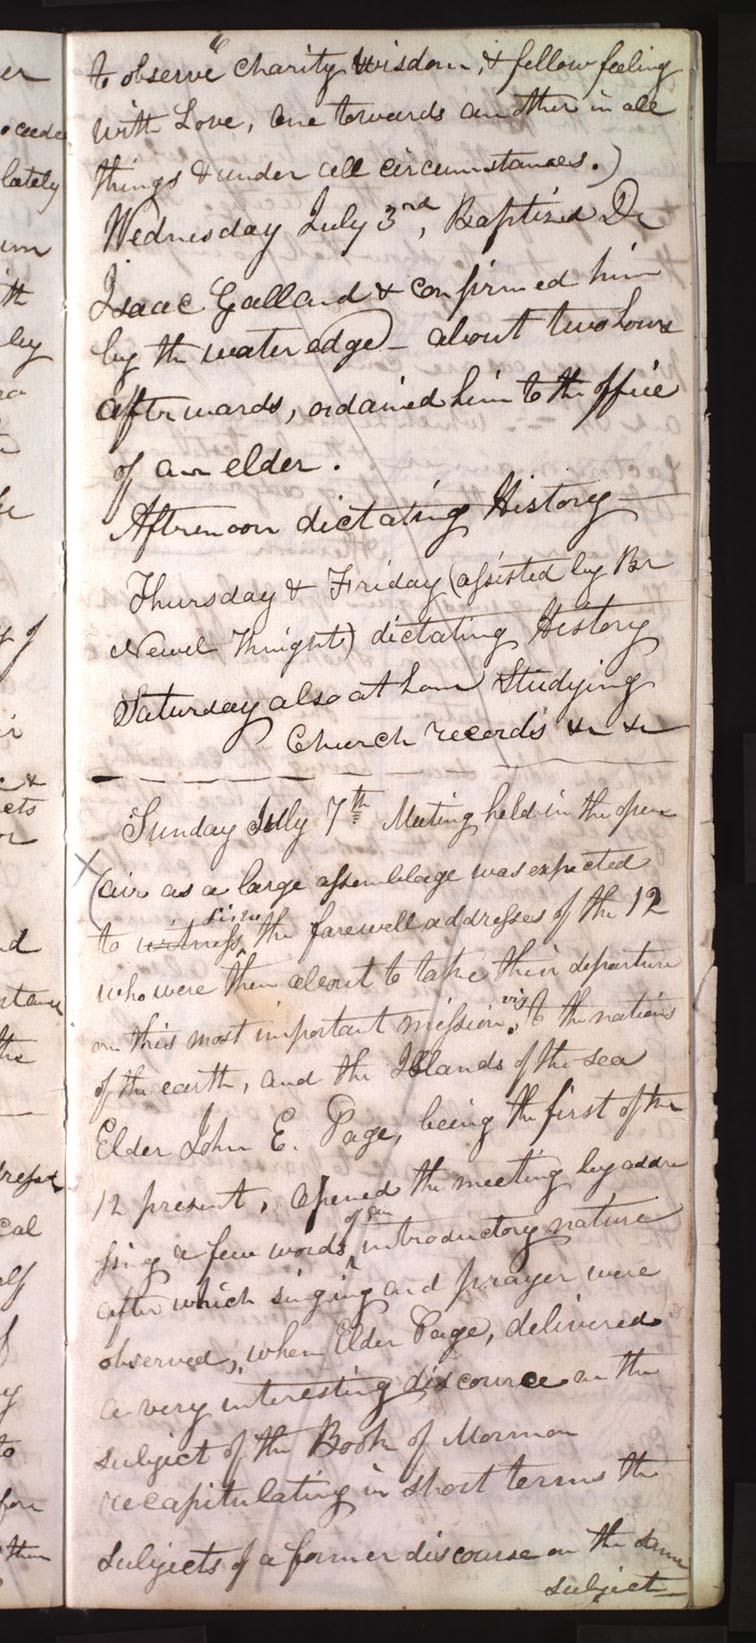 to observe charity Wisdom, & fellow feeling
with Love, one towards another in all
things & under all circumstances.)
Wednesday July 3rd, Baptized Dr
Isaac Galland & confirmed him
by the water edge — about two hours
afterwards, ordained him to the office
of an elder.
Afternoon dictating History—
Thursday & Friday (assisted by Br
Newel Knight) dictating History
Saturday also at home Studying
Church records &c &c
Sunday July 7th Meeting held in the open
(air as a large assemblage was expected
to witness the farewell addresses of the 12
who were then about to take their departure
on this most important mission, viz to the nations
of the earth, and the Islands of the sea
Elder John E. Page, being the first of the
12 present, opened the meeting by addre
ssing a few words of an introductory nature
after which singing and prayer were
observed, when Elder Page, delivered
a very interesting discource on the
subject of the Book of Mormon
recapitulating in short terms the
subjects of a former discourse on the same
subject—
er
lately
ley
of
ets
d
the
cal
elf
y
to